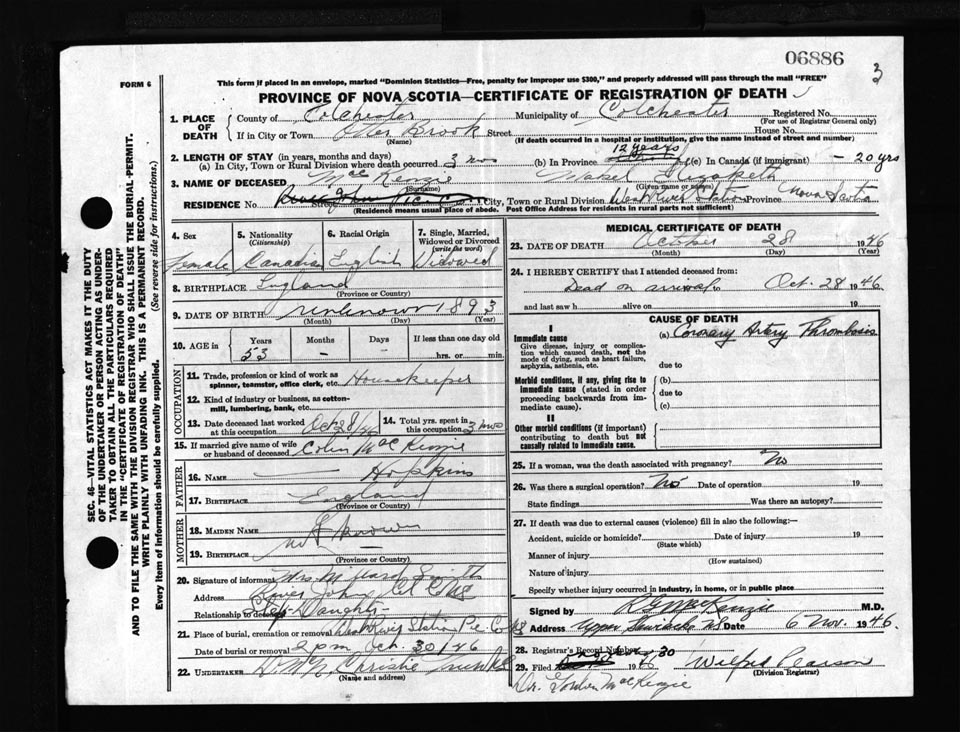 06886
3
FORM 6
This form if placed in an envelope, marked "Dominion Statistics—Free, penalty for improper use $300," and properly addressed will pass through the mail "FREE"
PROVINCE OF NOVA SCOTIA—CERTIFICATE OF REGISTRATION OF DEATH
1. PLACE OF DEATH County of Colchester Municipality of Colchester Registered No. (For use of Registrar General only)
If in City or Town Brook Street House No.
(Name) (If death occurred in a hospital or institution, give the name instead of street and number)
2. LENGTH OF STAY (in years, months and days) 12 years
(a) In City, Town or Rural Division where death occurred 3 mos (b) In Province (c) In Canada (if immigrant) — 20 yrs
3. NAME OF DECEASED MacKenzie Mabel Elizabeth
(Surname) (Given name or names)
RESIDENCE No. Street City, Town or Rural Division West River Station Province Nova Scotia
(Residence means usual place of abode. Post Office Address for residents in rural parts not sufficient)
SEC. 46—VITAL STATISTICS ACT MAKES IT THE DUTY OF THE UNDERTAKER OR PERSON ACTING AS UNDERTAKER TO OBTAIN ALL THE PARTICULARS REQUIRED IN THE "CERTIFICATE OF REGISTRATION OF DEATH" AND TO FILE THE SAME WITH THE DIVISION REGISTRAR WHO SHALL ISSUE THE BURIAL PERMIT.
WRITE PLAINLY WITH UNFADING INK. THIS IS A PERMANENT RECORD.
Every item of information should be carefully supplied. (See reverse side for instructions.)
4. Sex Female
5. Nationality (Citizenship) Canadian
6. Racial Origin English
7. Single, Married, Widowed or Divorced (write the word) Widowed
8. BIRTHPLACE England
(Province or Country)
9. DATE OF BIRTH Unknown 1893
(Month) (Day) (Year)
10. AGE in Years 53 Months – Days – If less than one day old hrs. or min.
OCCUPATION
11. Trade, profession or kind of work as spinner, teamster, office clerk, etc. Housekeeper
12. Kind of industry or business, as cotton-mill, lumbering, bank, etc.
13. Date deceased last worked at this occupation Oct 28/46
14. Total yrs. spent in this occupation 3 mos
15. If married give name of wife or husband of deceased Colin MacKenzie
FATHER
16. NAME Hopkins
17. BIRTHPLACE England
(Province or Country)
MOTHER
18. MAIDEN NAME
not known
19. BIRTHPLACE —
(Province or Country)
20. Signature of informant Mrs. Millard Smith
Address River John
Relationship to deceased Step-Daughter
21. Place of burial, cremation or removal West River Station Pic. Co.
Date of burial or removal 2 pm Oct. 30/46
22. UNDERTAKER Christie
(Name and address)
MEDICAL CERTIFICATE OF DEATH
23. DATE OF DEATH October 28 1946
(Month) (Day) (Year)
24. I HEREBY CERTIFY that I attended deceased from:
Dead on arrival to Oct. 28 1946
and last saw h alive on 19
CAUSE OF DEATH
I
Immediate cause (a) Coronary Artery Thrombosis
Give disease, injury or complication which caused death, not the mode of dying, such as heart failure, asphyxia, asthenia, etc.
due to
Morbid conditions, if any, giving rise to immediate cause (stated in order proceeding backwards from immediate cause). (b)
due to
(c)
II
Other morbid conditions (if important) contributing to death but not causally related to immediate cause.
25. If a woman, was the death associated with pregnancy? No
26. Was there a surgical operation? No Date of operation 19
State findings Was there an autopsy?
27. If death was due to external causes (violence) fill in also the following:—
Accident, suicide or homicide? Date of injury 19
(State which)
Manner of injury
(How sustained)
Nature of injury
Specify whether injury occurred in industry, in home, or in public place
Signed by MacKenzie M.D.
Address Upper Stewiacke NS Date 6 Nov. 1946.
28. Registrar's Record Number 30
29. Filed 1946 Wilfred Pearson
(Division Registrar)
Dr. Gordon MacKenzie